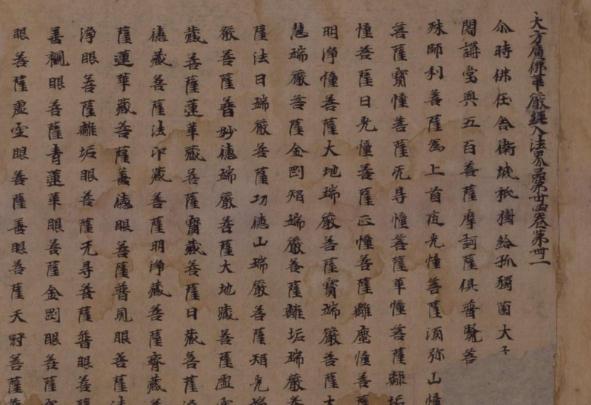 大方廣佛華嚴經入法界品第卅四卷第卌一
尒時佛在舍衛城祇樹給孤獨園大
閣講堂與五百菩薩摩訶薩俱普賢菩
殊師利菩薩為上首復光幢菩薩須弥山幢
菩薩寶幢菩薩无㝵幢菩薩華幢菩薩離垢
幢菩薩日光幢菩薩正幢菩薩離塵幢菩薩
明淨幢菩薩大地瑞嚴菩薩寶瑞嚴菩薩大
慧瑞嚴菩薩金剛智瑞嚴菩薩離垢瑞嚴菩
薩法日瑞嚴菩薩功德山瑞嚴菩薩智光瑞
嚴菩薩普妙德瑞嚴菩薩大地藏菩薩虛空
藏菩薩蓮華藏菩薩寶藏菩薩日藏菩薩
德藏菩薩法印藏菩薩明淨藏菩薩齊藏菩
薩蓮華藏菩薩善德眼菩薩普見眼菩薩
淨眼菩薩離垢眼菩薩无㝵菩薩普眼菩薩
善觀眼菩薩青蓮華眼菩薩金剛眼菩薩
眼菩薩虛空眼菩薩善眼菩薩天冠菩薩